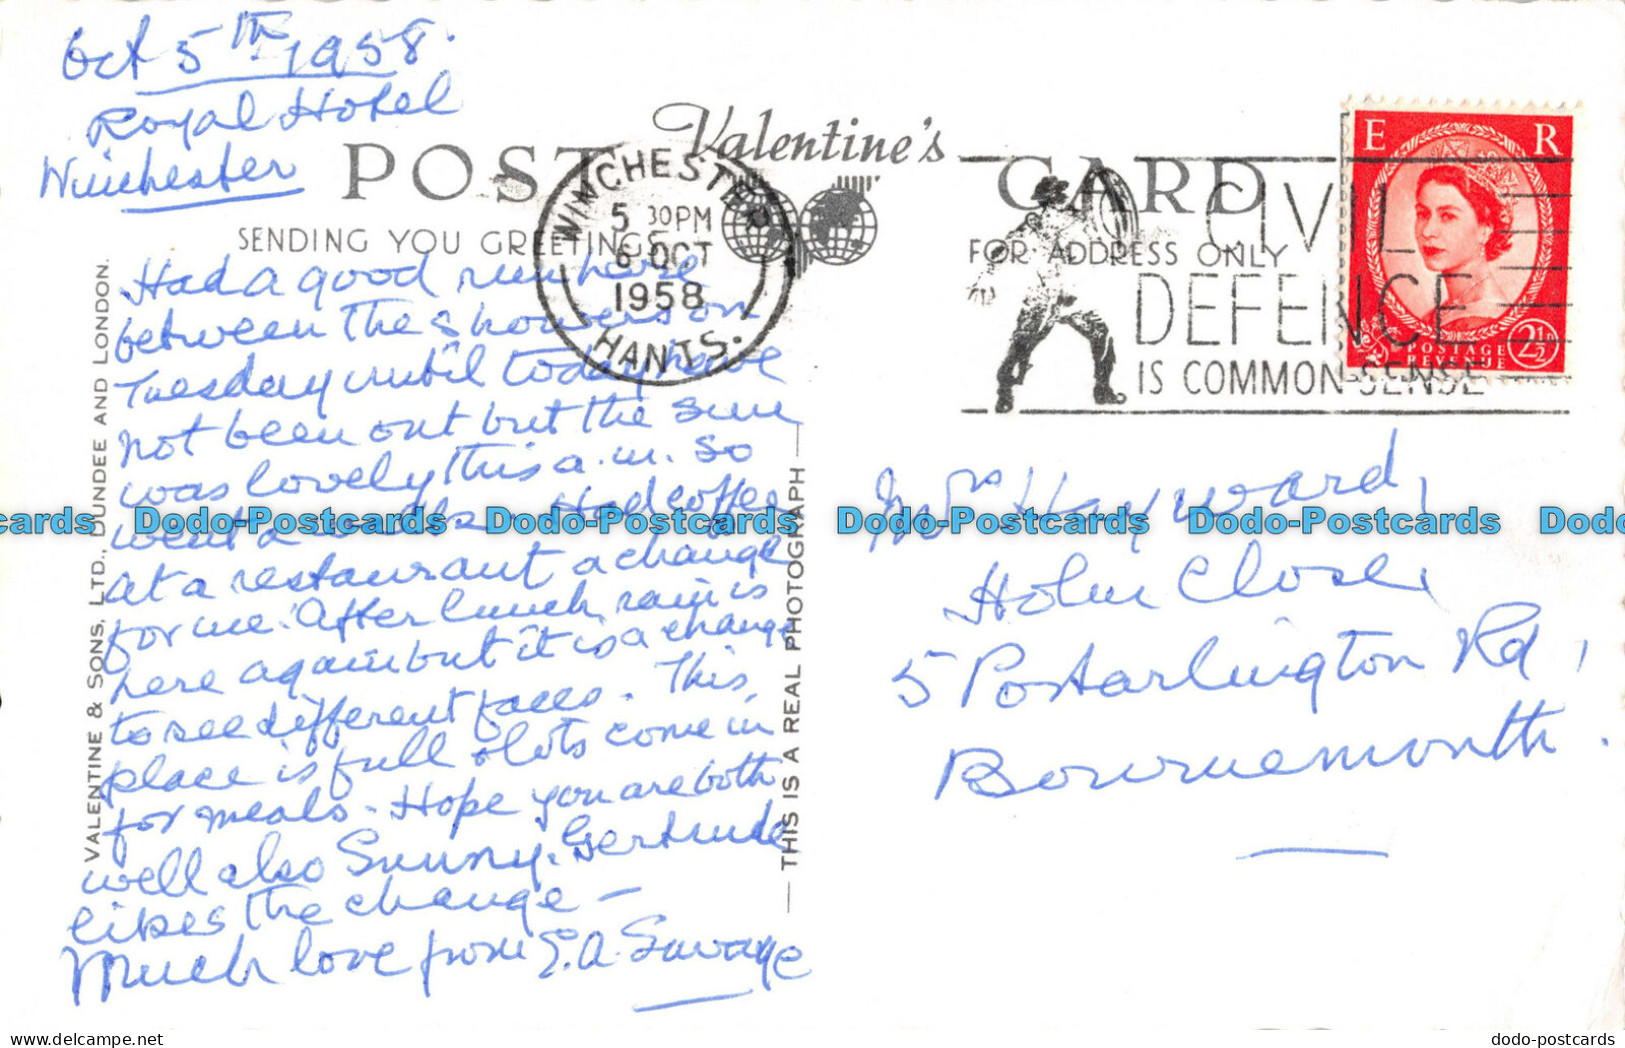 Oct 5th 1958.
Royal Hotel
Winchester
Valentine's
POST CARD
SENDING YOU GREETINGS
FOR ADDRESS ONLY
WINCHESTER
5 30PM
6 OCT
1958
HANTS.
CIVIL
DEFENCE
IS COMMON-SENSE
E R
POSTAGE
REVENUE
2½D
Had a good run here
between the showers on
Tuesday until today have
not been out but the sun
was lovely this a.m. so
went a walk. Had coffee
at a restaurant a change
for me. After lunch rain is
here again but it is a change
to see different faces. This
place is full & lots come in
for meals. Hope you are both
well also Sunny. Gertrude
likes the change –
Much love from E.A. Savage
Mrs Hayward,
Holm Close,
5 Portarlington Rd,
Bournemouth.
VALENTINE & SONS, LTD., DUNDEE AND LONDON.
THIS IS A REAL PHOTOGRAPH
Dodo-Postcards Dodo-Postcards Dodo-Postcards Dodo-Postcards Dodo-Postcards Dodo-Postcards Dodo-Postcards Dodo-Postcards Dodo
dodo-postcards